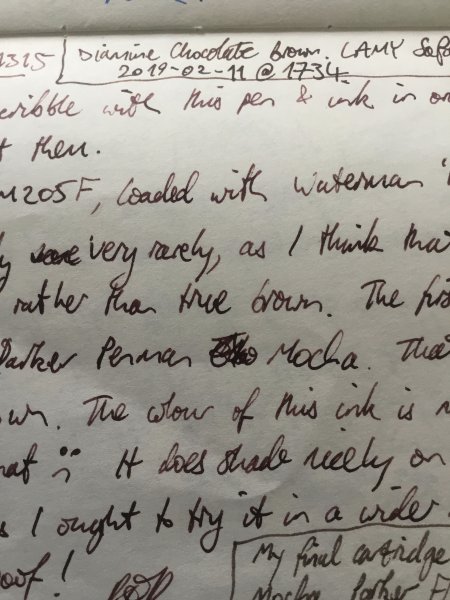 1315 Diamine Chocolate Brown. LAMY Safa
2019-02-11 @ 1734
cribble with this pen & ink in or
t then.
M205F, loaded with Waterman
ly very rarely, as I think tha
rather than true brown. The firs
Parker Penman Mocha. Tha
own. The colour of this ink is n
hat :) It does shade nicely on
s I ought to try it in a wider
oof!
My final cartridge
Mocha Parker F